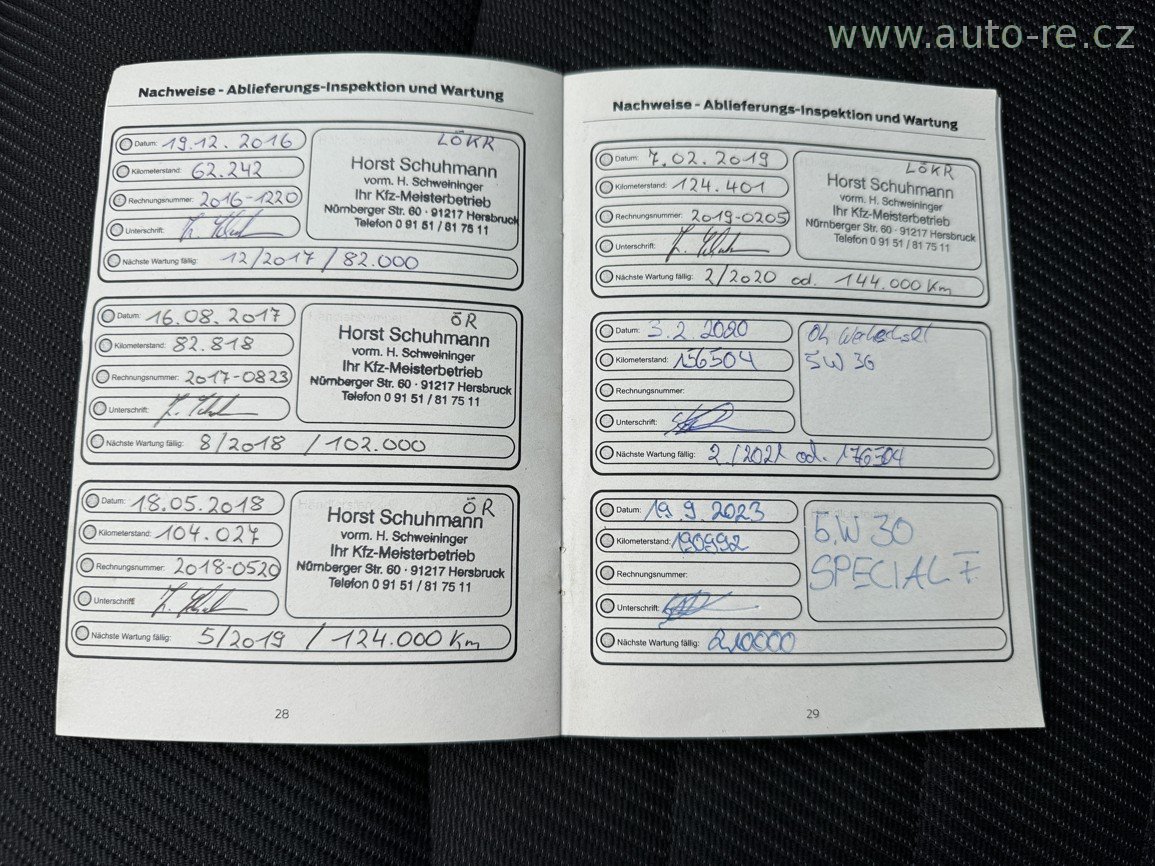 www.auto-re.cz
Nachweise - Ablieferungs-Inspektion und Wartung
Datum: 19.12.2016
Kilometerstand: 62.242
Rechnungsnummer: 2016-1220
Unterschrift:
Nächste Wartung fällig: 12/2017 / 82.000
LÖKR
Horst Schuhmann
vorm. H. Schweininger
Ihr Kfz-Meisterbetrieb
Nürnberger Str. 60 · 91217 Hersbruck
Telefon 0 91 51 / 81 75 11
Datum: 16.08.2017
Kilometerstand: 82.818
Rechnungsnummer: 2017-0823
Unterschrift:
Nächste Wartung fällig: 8/2018 / 102.000
ÖR
Horst Schuhmann
vorm. H. Schweininger
Ihr Kfz-Meisterbetrieb
Nürnberger Str. 60 · 91217 Hersbruck
Telefon 0 91 51 / 81 75 11
Datum: 18.05.2018
Kilometerstand: 104.027
Rechnungsnummer: 2018-0520
Unterschrift:
Nächste Wartung fällig: 5/2019 / 124.000 Km
ÖR
Horst Schuhmann
vorm. H. Schweininger
Ihr Kfz-Meisterbetrieb
Nürnberger Str. 60 · 91217 Hersbruck
Telefon 0 91 51 / 81 75 11
28
Nachweise - Ablieferungs-Inspektion und Wartung
Datum: 7.02.2019
Kilometerstand: 124.401
Rechnungsnummer: 2019-0205
Unterschrift:
Nächste Wartung fällig: 2/2020 od. 144.000 Km
LÖKR
Horst Schuhmann
vorm. H. Schweininger
Ihr Kfz-Meisterbetrieb
Nürnberger Str. 60 · 91217 Hersbruck
Telefon 0 91 51 / 81 75 11
Datum: 3.2.2020
Kilometerstand: 156504
Rechnungsnummer:
Unterschrift:
Nächste Wartung fällig: 2./2021 od. 176504
5W30
Datum: 19.9.2023
Kilometerstand: 190992
Rechnungsnummer:
Unterschrift:
Nächste Wartung fällig: 210000
5W30
SPECIAL F
29